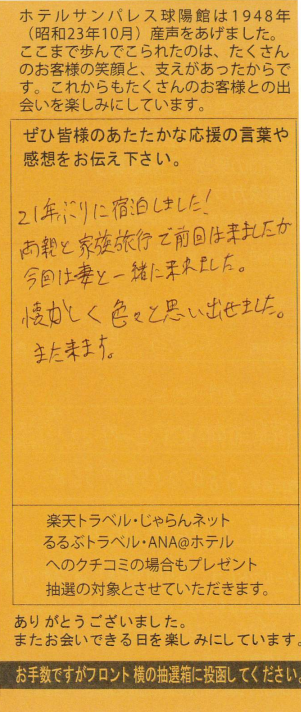 ホテルサンパレス球陽館は1948年
（昭和23年10月）産声をあげました。
ここまで歩んでこられたのは、たくさん
のお客様の笑顔と、支えがあったからで
す。これからもたくさんのお客様との出
会いを楽しみにしています。
ぜひ皆様のあたたかな応援の言葉や
感想をお伝え下さい。
21年ぶりに宿泊しました！
両親と家族旅行で前回は来ましたが
今回は妻と一緒に来れました。
懐かしく色々と思い出せました。
また来ます。
楽天トラベル・じゃらんネット
るるぶトラベル・ANA@ホテル
へのクチコミの場合もプレゼント
抽選の対象とさせていただきます。
ありがとうございました。
またお会いできる日を楽しみにしています。
お手数ですがフロント横の抽選箱に投函してください。